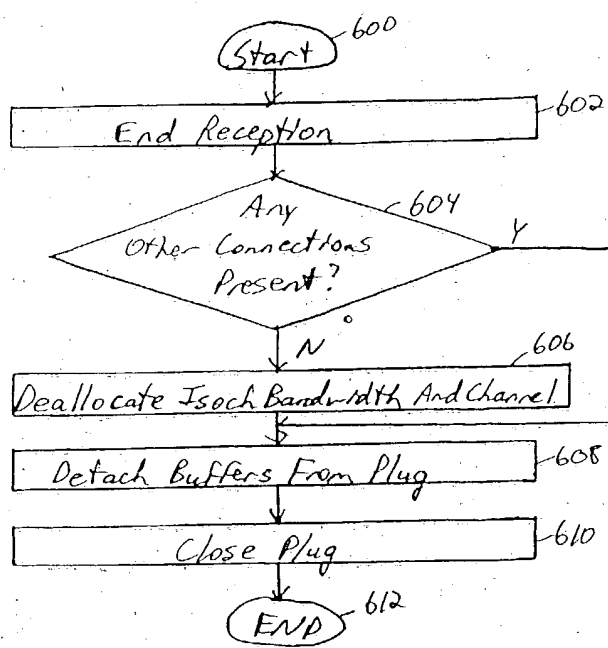 600
Start
602
End Reception
604
Any
Other Connections
Present?
Y
N
606
Deallocate Isoch Bandwidth And Channel
608
Detach Buffers From Plug
610
Close Plug
612
END